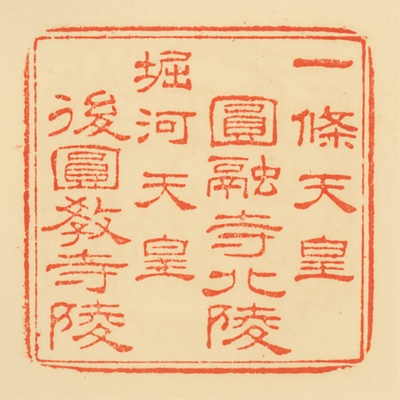 一條天皇
圓融寺北陵
堀河天皇
後圓教寺陵